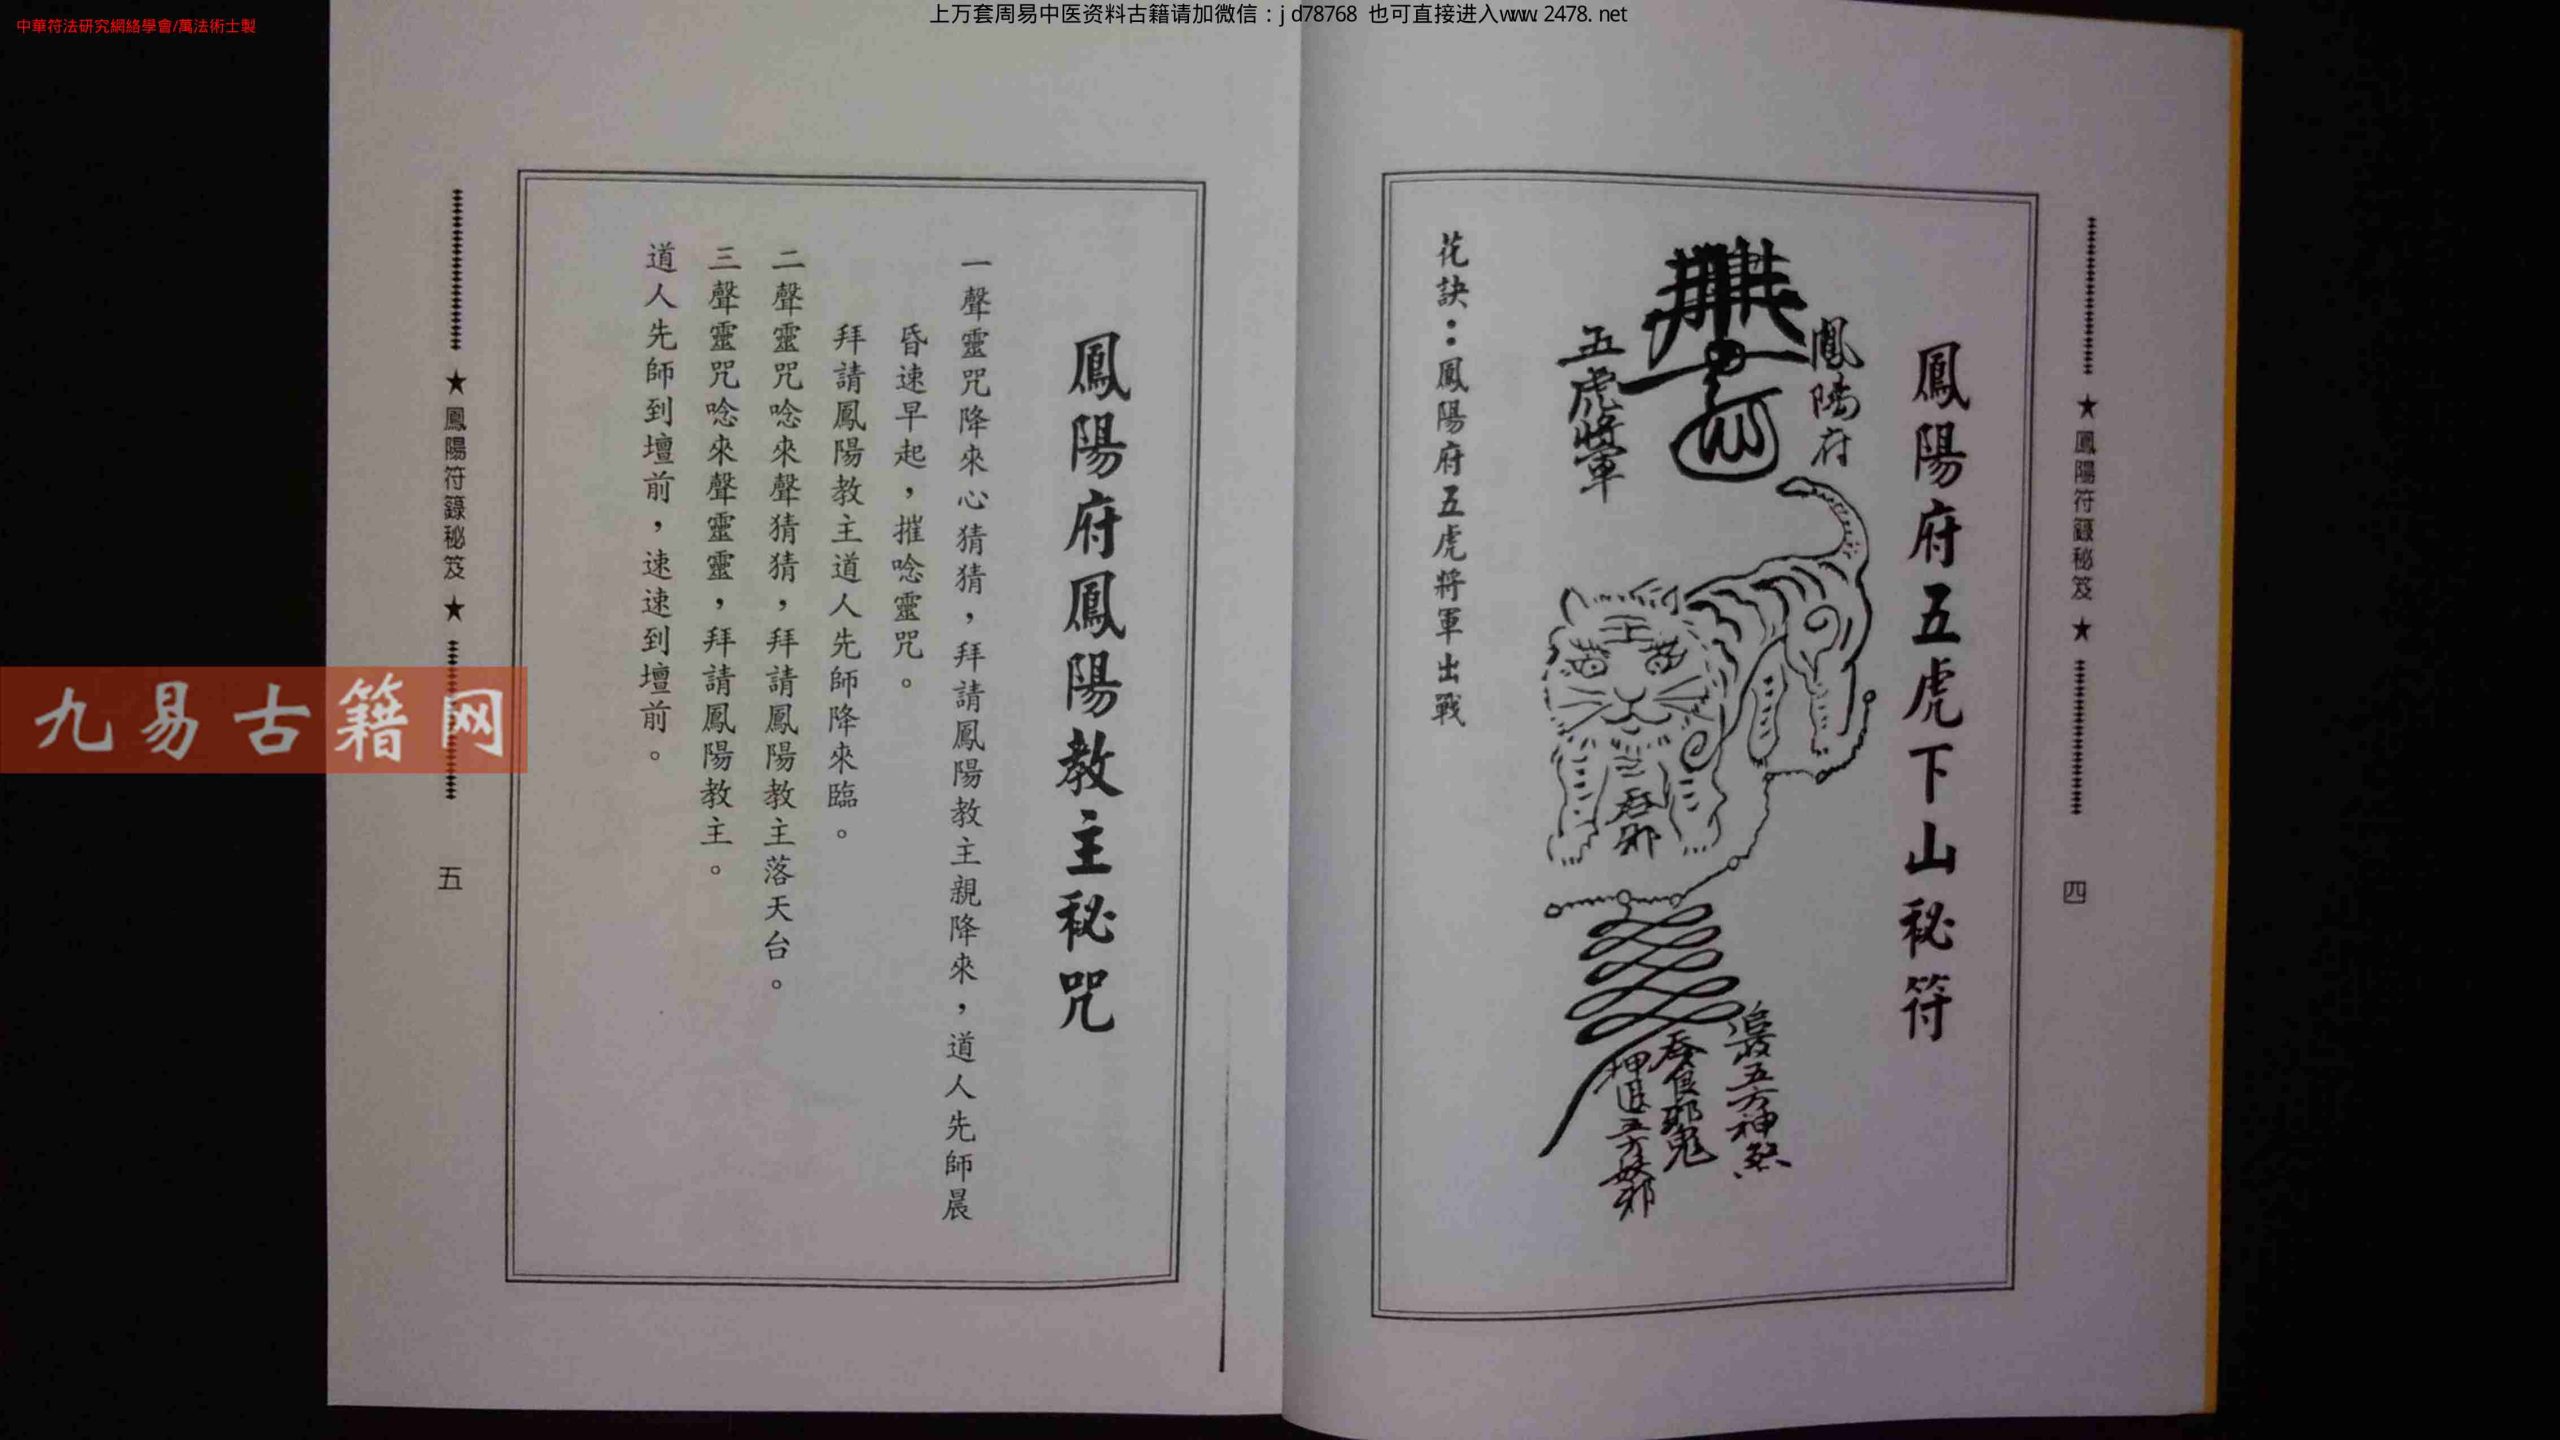 中華符法研究網絡學會/萬法術士製
上万套周易中医资料古籍请加微信：jd78768 也可直接进入www.2478.net
★鳳陽符籙秘笈★
四
鳳陽府五虎下山秘符
鳳陽府
五虎將軍
王
吞邪
五方神煞
吞食邪鬼
五方妖邪
花訣：鳳陽府五虎將軍出戰
鳳陽府鳳陽教主秘咒
一聲靈咒降來心猜猜，拜請鳳陽教主親降來，道人先師晨
昏速早起，摧唸靈咒。
拜請鳳陽教主道人先師降來臨。
二聲靈咒唸來聲猜猜，拜請鳳陽教主落天台。
三聲靈咒唸來聲靈靈，拜請鳳陽教主。
道人先師到壇前，速速到壇前。
★鳳陽符籙秘笈★
五
九易古籍网